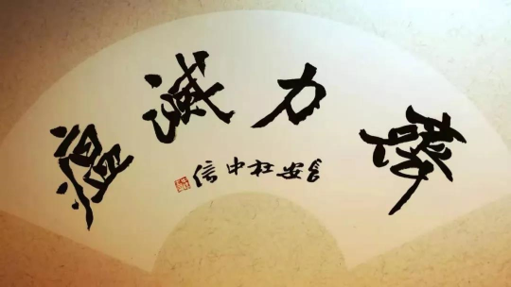 戮力滅瘟
長安杜中信